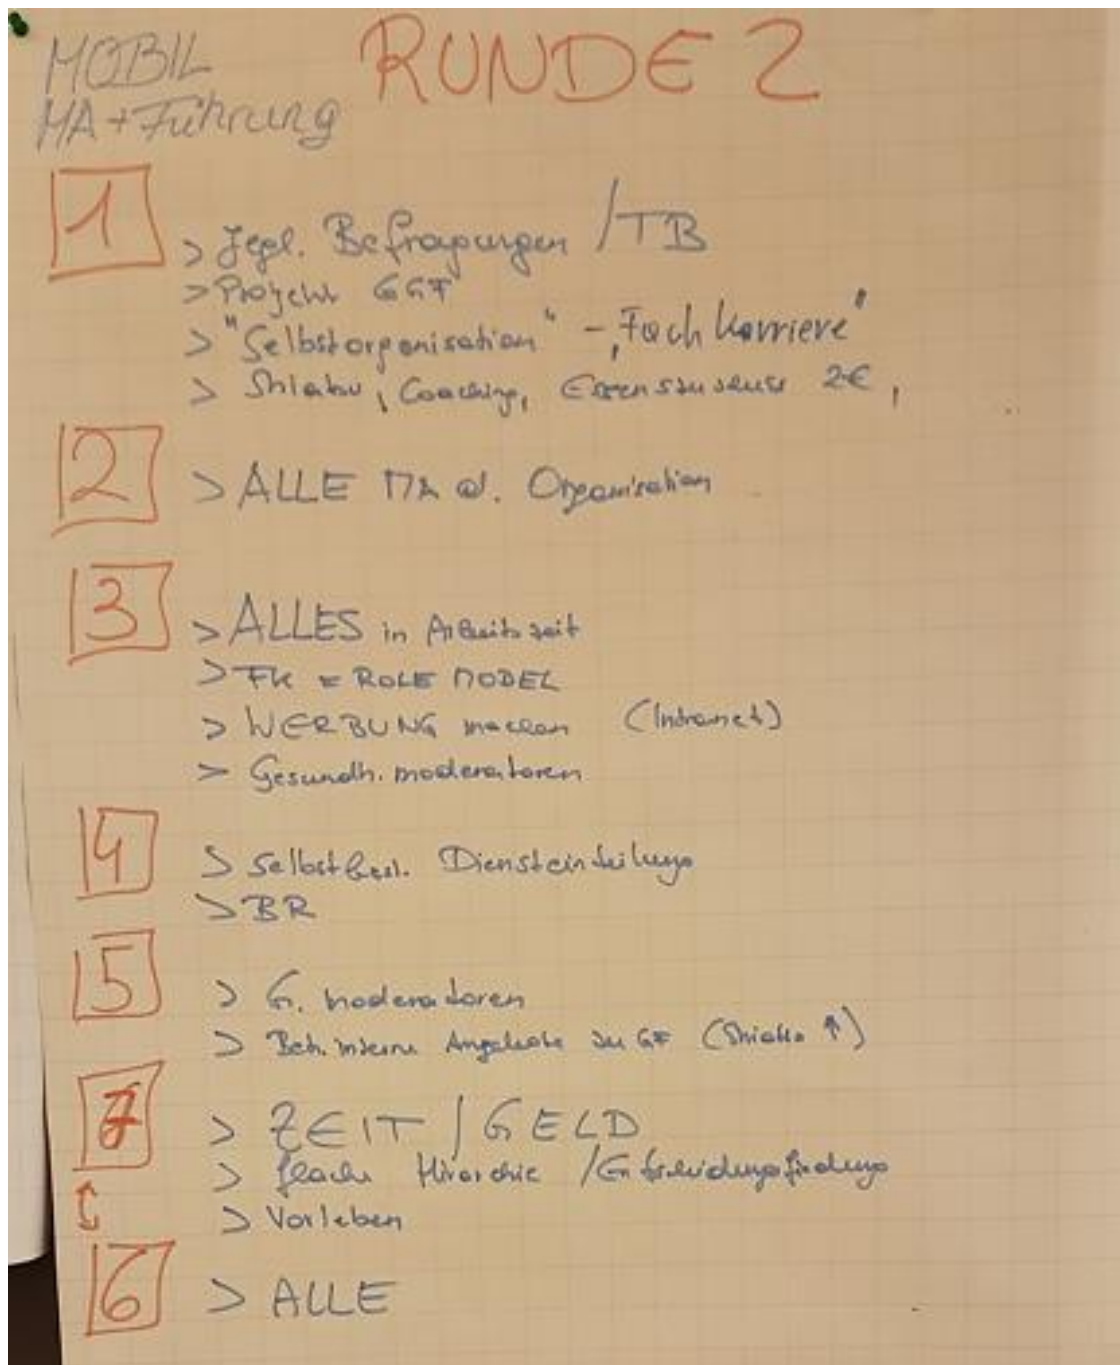 MOBIL
MA + Führung
RUNDE 2
1
> Jegl. Befragungen / TB
> Projekt GGF
> "Selbstorganisation" - "Fachkarriere"
> Shiatsu, Coaching, 2€,
2
> ALLE MA d. Organisation
3
> ALLES in Arbeitszeit
> FK = ROLE MODEL
> WERBUNG machen (Intranet)
> Gesundh. moderatoren
4
> Selbstbest. Diensteinteilung
> BR
5
> G. moderatoren
> Betr. interne Angebote zu GF
7
> ZEIT / GELD
> flache Hirarchie / Entscheidungsfindung
> Vorleben
6
> ALLE